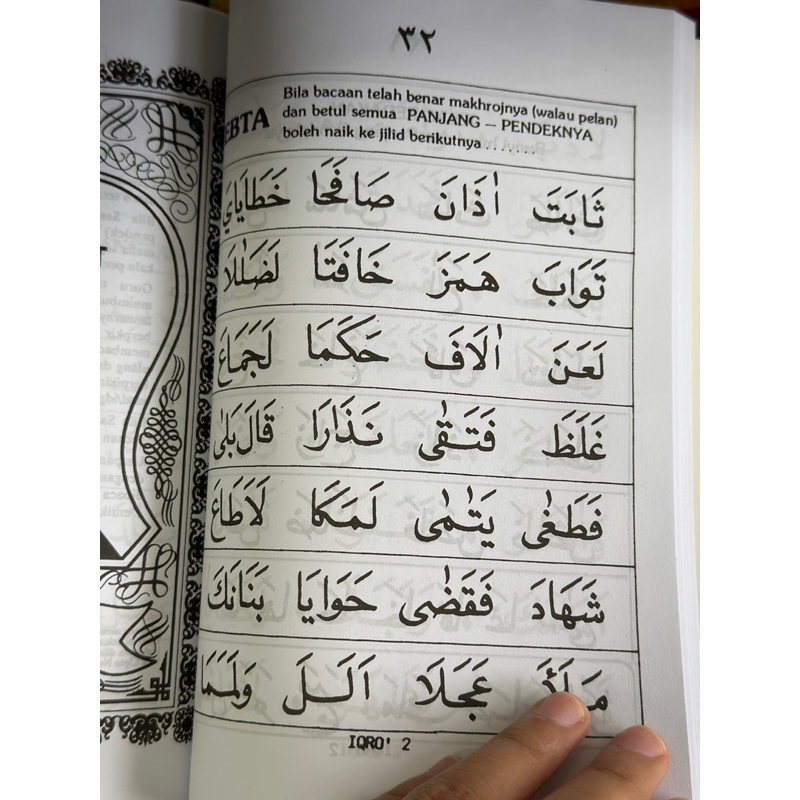 ٣٢
EBTA
Bila bacaan telah benar makhrojnya (walau pelan)
dan betul semua PANJANG – PENDEKNYA
boleh naik ke jilid berikutnya . . . . . . .
ثَابَتَ اٰذَانَ صَافَحَا خَطَايَاي
تَوَابَ هَمَزَ خَافَتَا لَضَلٰلَا
لَعَنَ اٰلَافَ حَكَمَا لَجَمَاعَ
غَلَظَ فَتَقٰى نَذَارَا قَالَ بَلٰى
فَطَغٰى يَتٰمٰى لَمَكَا لَاَطَاعَ
شَهَادَ فَقَضٰى حَوَايَا بَنَانَكَ
عَجَلَا اَلَـلَ وَلَمَمَا
IQRO' 2